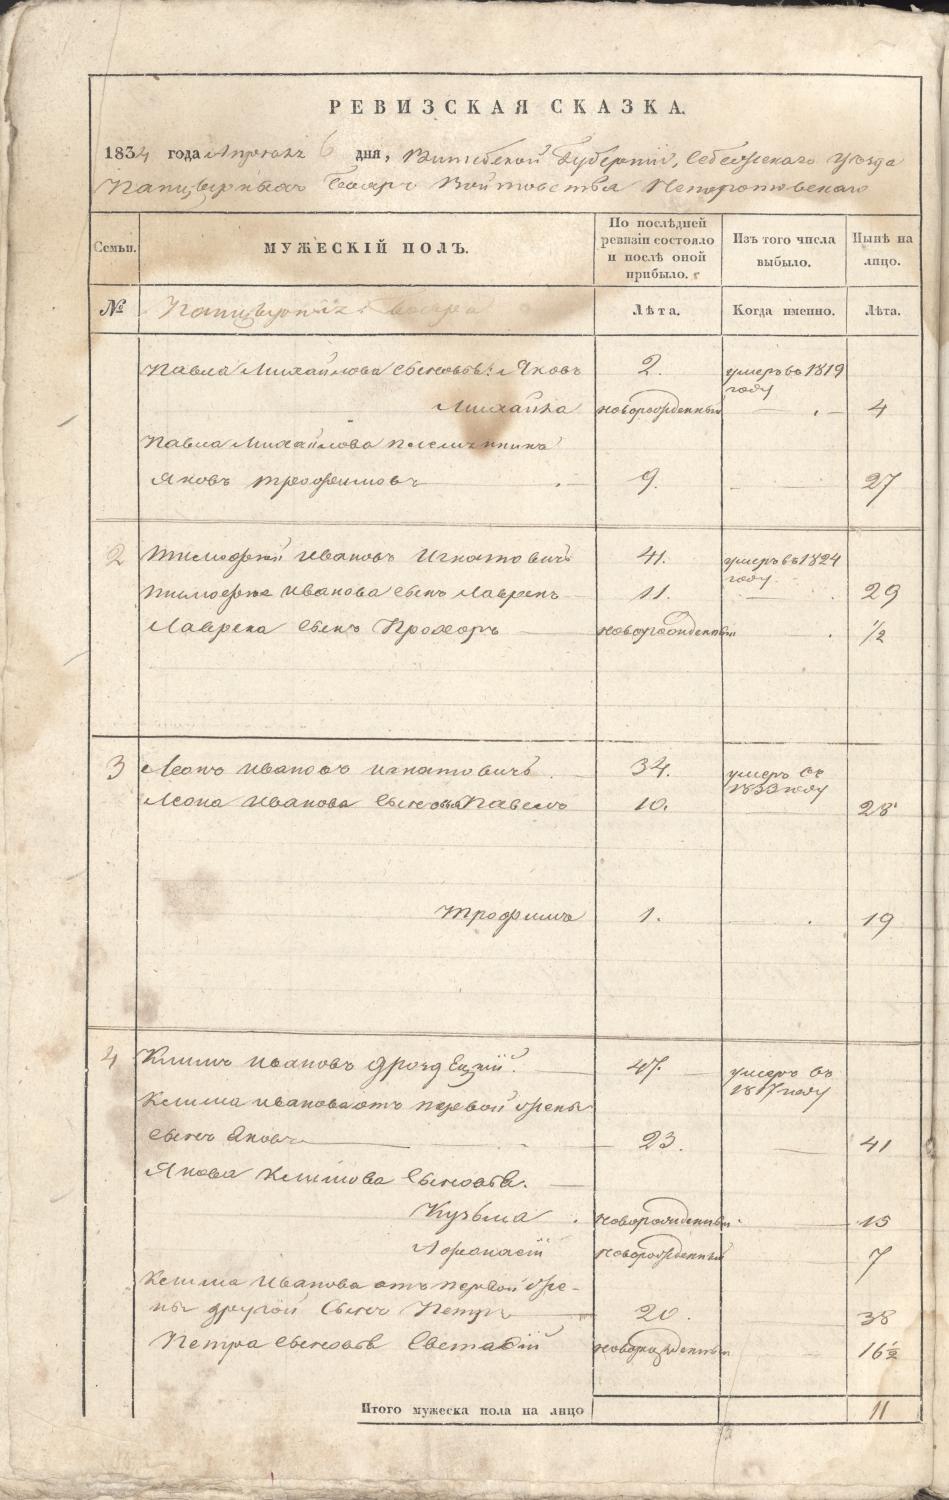 РЕВИЗСКАЯ СКАЗКА.
1834 года Апреля 6 дня, Витебской Губернiи, Себежскаго уѣзда
Панцырныхъ Бояръ Войтовства Непоротовскаго
Семьи. МУЖЕСКIЙ ПОЛЪ. По послѣдней ревизiи состояло и послѣ оной прибыло. Изъ того числа выбыло. Нынѣ на лицо.
№ Панцырныхъ бояръ Лѣта. Когда именно. Лѣта.
Павла Михайлова сыновья: Яковъ 2. умеръ въ 1819 году
Михайла новорожденный 4
Павла Михайлова племянникъ
Яковъ Трофимовъ 9. 27
2 Тимофей Ивановъ Игнатовичъ 41. умеръ въ 1824 году.
Тимофея Иванова сынъ Лавренъ 11. 29
Лаврена сынъ Прохоръ новорожденный 1/2
3 Леонъ Ивановъ Игнатовичъ 34. умеръ въ 1833 году
Леона Иванова сыновья Павелъ 10. 28
Трофимъ 1. 19
4 Климъ Ивановъ Дроздецкiй. 47. умеръ въ 1817 году
Клима Иванова отъ первой жены
сынъ Яковъ 23. 41
Якова Климова сыновья.
Кузьма новорожденный 15
Афонасiй новорожденный 7
Клима Иванова отъ первой же-
ны другой сынъ Петръ 20. 38
Петра сыновья Евстафiй новорожденный 16 1/2
Итого мужеска пола на лицо 11